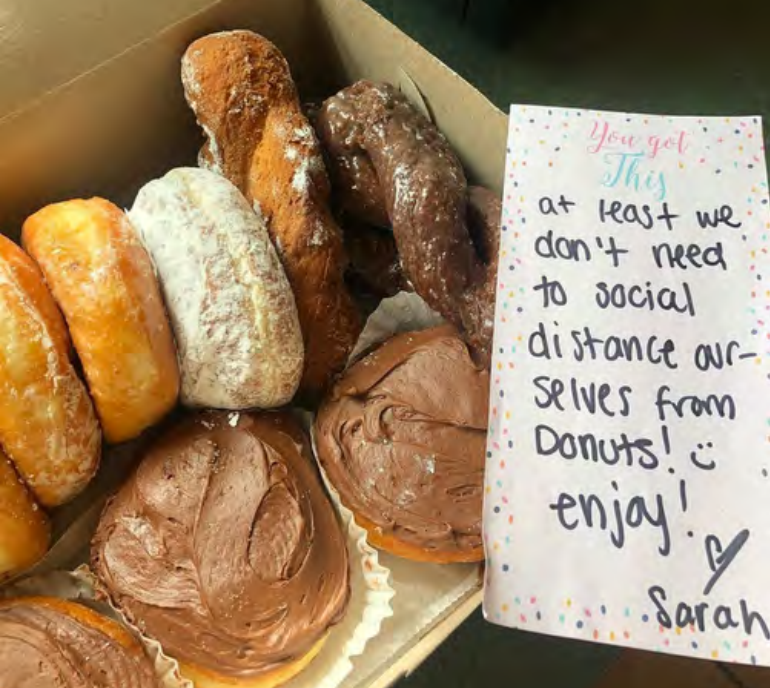 You got
This
at least we
don't need
to social
distance our-
selves from
Donuts! :)
enjoy!
Sarah